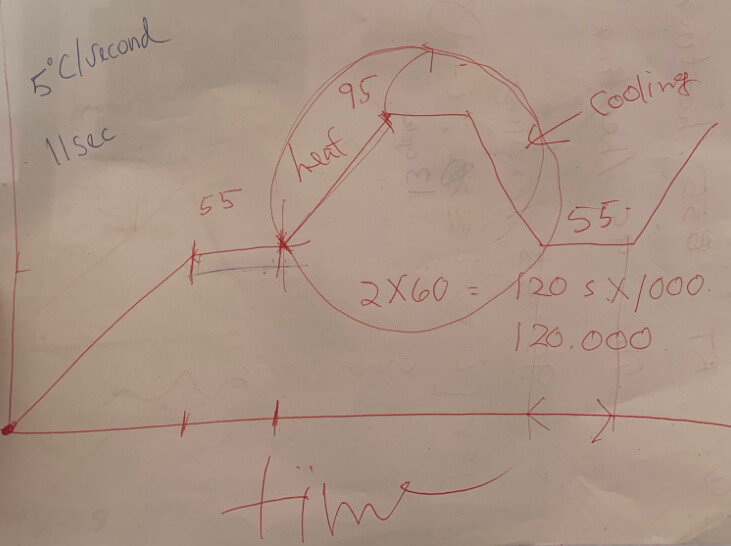 5°C/second
11sec
95
cooling
heat
55
55
2X60 = 120 s X1000.
120.000
time